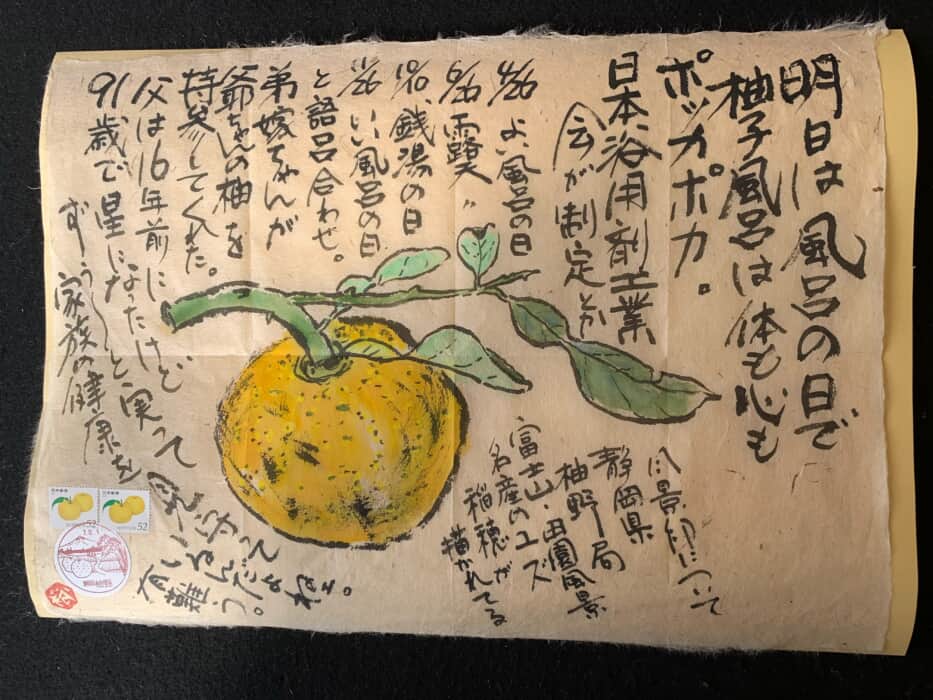 明日は風呂の日で
柚子風呂は体も心も
ポッカポカ。
日本浴用剤工業
会が制定とか
4/26 よい風呂の日
6/26 露天〃
10/10 銭湯の日
11/26 いい風呂の日
と語呂合わせ。
弟嫁ちゃんが
爺ちゃんの柚を
持参してくれた。
父は16年前に
91歳で星になったけど
ずうーっと実って
家族の健康を
見守って
いるんだよねェ。
有難う。
風景印について
静岡県
柚野局
富士山・田園風景
名産のユズ
稲穂が
描かれてる
日本郵便
52
日本郵便
52